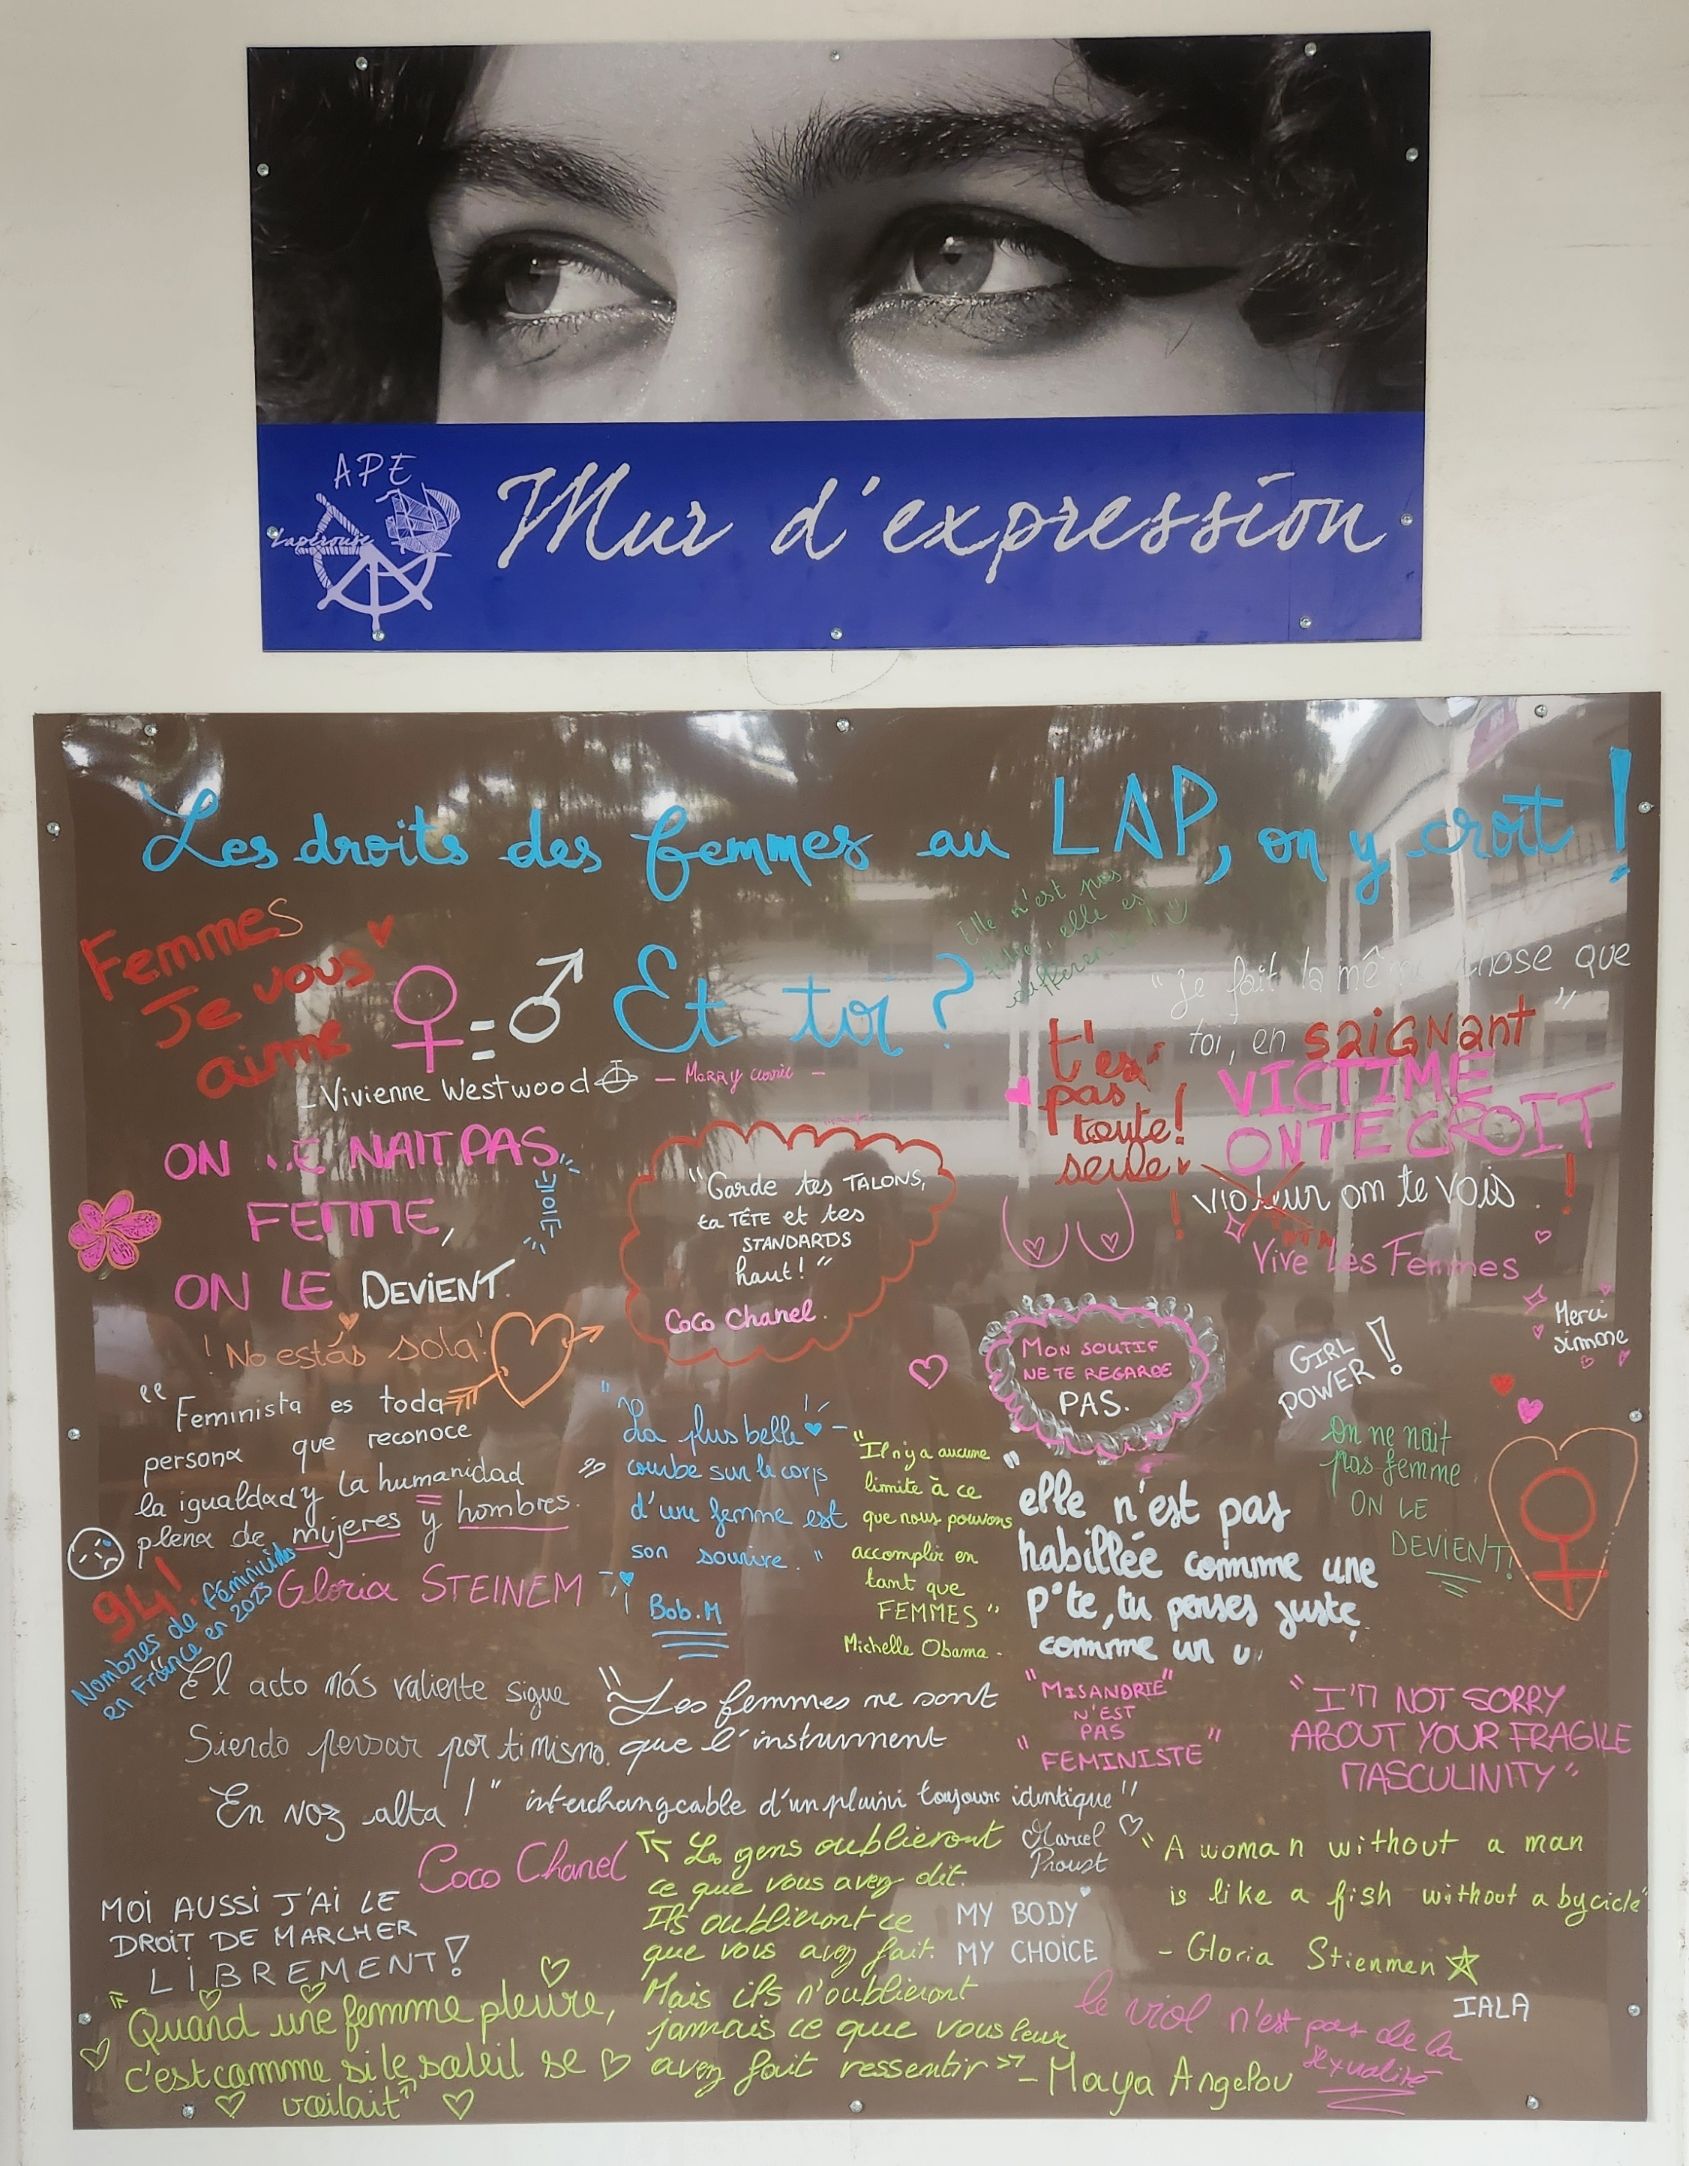 APE
Lapérouse
Mur d'expression
Les droits des femmes au LAP, on y croit !
Et toi ?
Femmes
Je vous
aime
♀ = ♂
- Vivienne Westwood
- Marry Curie -
Elle n'est pas
elle est
différente !
"je fait la même chose que
toi, en saignant"
t'es
pas
toute !
seule
VICTIME
ON TE CROIT
! Violeur on te vois !
Vive Les Femmes
Merci
Simone
ON NAIT PAS
FEMME,
ON LE DEVIENT.
! No estás sola !
"Garde tes TALONS,
ta TÊTE et tes
STANDARDS
haut ! "
Coco Chanel.
MON SOUTIF
NE TE REGARDE
PAS.
GIRL
POWER !
On ne nait
pas femme
ON LE
DEVIENT !
" Feminista es toda
persona que reconoce
la igualdad y la humanidad
plena de mujeres y hombres. "
Gloria STEINEM
94 !
Nombres de féminicides
en France en 2023
"La plus belle
courbe sur le corps
d'une femme est
son sourire. "
Bob.M
"Il n'y a aucune
limite à ce
que nous pouvons
accomplir en
tant que
FEMMES "
Michelle Obama -
"elle n'est pas
habillée comme une
p*te, tu penses juste
comme un
El acto más valiente sigue
Siendo pensar por ti mismo.
En voz alta ! "
Coco Chanel
"Les femmes ne sont
que l'instrument
interchangeable d'un plaisir toujours identique"
Marcel
Proust
"MISANDRIE"
N'EST
PAS
"FEMINISTE"
"I'M NOT SORRY
ABOUT YOUR FRAGILE
MASCULINITY"
"A woman without a man
is like a fish without a bycicle"
- Gloria Stienmen
IALA
MOI AUSSI J'AI LE
DROIT DE MARCHER
LIBREMENT !
Les gens oublieront
ce que vous avez dit.
Ils oublieront ce
que vous avez fait.
Mais ils n'oublieront
jamais ce que vous leur
avez fait ressentir" - Maya Angelou
MY BODY
MY CHOICE
le viol n'est pas de la
sexualité
"Quand une femme pleure,
c'est comme si le soleil se
voilait"